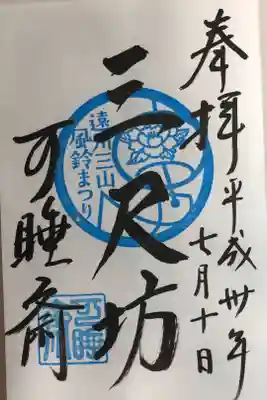 奉拝 平成卅年七月十日
三尺坊
遠州三山
風鈴まつり
可睡斎